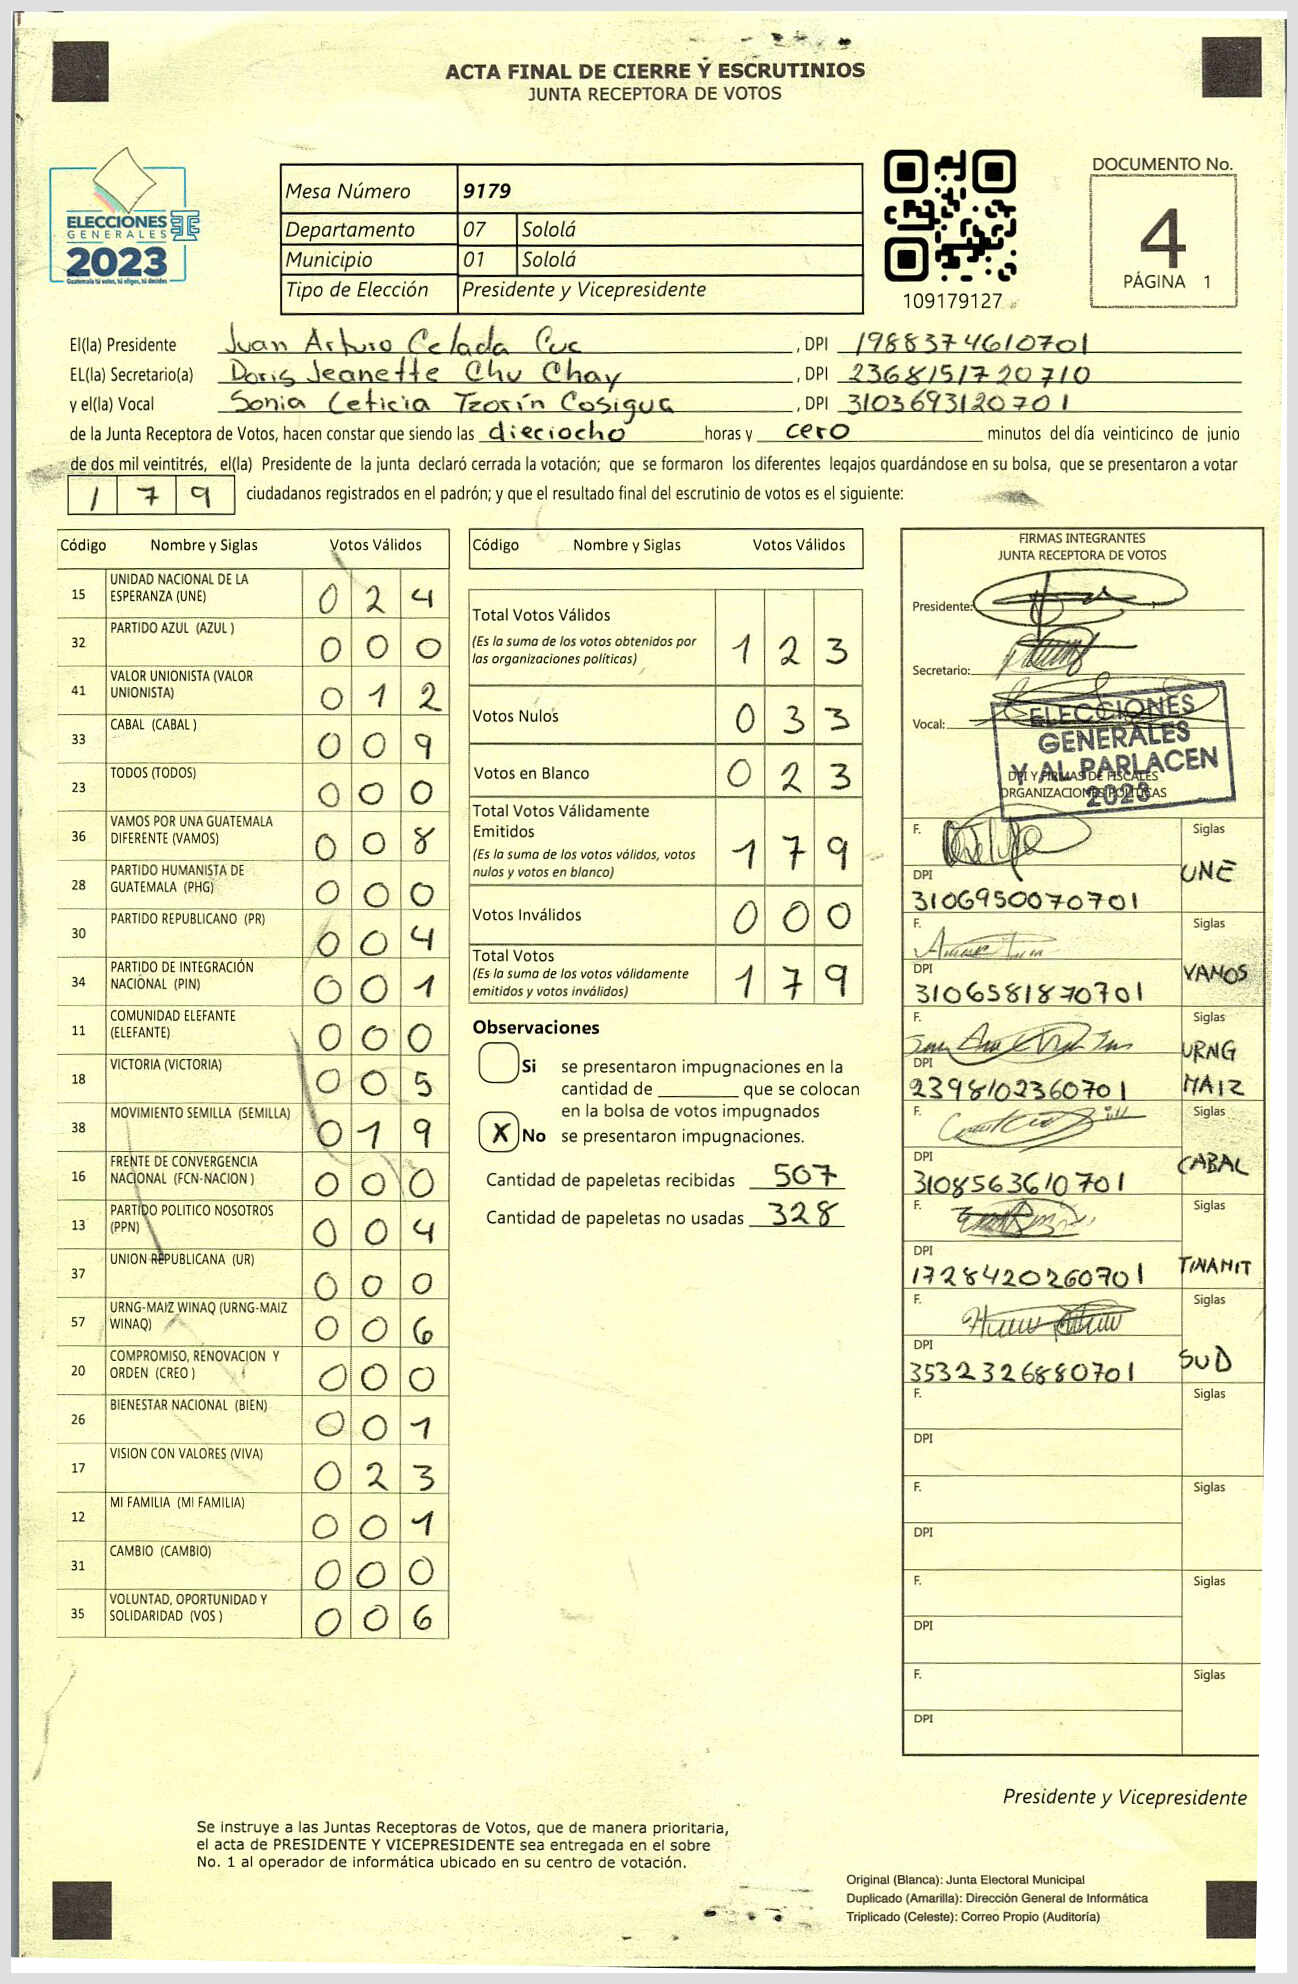 ACTA FINAL DE CIERRE Y ESCRUTINIOS
JUNTA RECEPTORA DE VOTOS
ELECCIONES
GENERALES
2023
Guatemala tú votes, tú eliges, tú decides
Mesa Número 9179
Departamento 07 Sololá
Municipio 01 Sololá
Tipo de Elección Presidente y Vicepresidente
109179127
DOCUMENTO No.
4
PÁGINA 1
El(la) Presidente Juan Arturo Celada Cuc , DPI 1988374610701
EL(la) Secretario(a) Doris Jeanette Chu Chay , DPI 2368151720710
y el(la) Vocal Sonia Leticia Tzorín Cosigua , DPI 3103693120701
de la Junta Receptora de Votos, hacen constar que siendo las dieciocho horas y cero minutos del día veinticinco de junio
de dos mil veintitrés, el(la) Presidente de la junta declaró cerrada la votación; que se formaron los diferentes legajos guardándose en su bolsa, que se presentaron a votar
179 ciudadanos registrados en el padrón; y que el resultado final del escrutinio de votos es el siguiente:
Código Nombre y Siglas Votos Válidos
15 UNIDAD NACIONAL DE LA ESPERANZA (UNE) 024
32 PARTIDO AZUL (AZUL ) 000
41 VALOR UNIONISTA (VALOR UNIONISTA) 012
33 CABAL (CABAL ) 009
23 TODOS (TODOS) 000
36 VAMOS POR UNA GUATEMALA DIFERENTE (VAMOS) 008
28 PARTIDO HUMANISTA DE GUATEMALA (PHG) 000
30 PARTIDO REPUBLICANO (PR) 004
34 PARTIDO DE INTEGRACIÓN NACIONAL (PIN) 001
11 COMUNIDAD ELEFANTE (ELEFANTE) 000
18 VICTORIA (VICTORIA) 005
38 MOVIMIENTO SEMILLA (SEMILLA) 019
16 FRENTE DE CONVERGENCIA NACIONAL (FCN-NACION ) 000
13 PARTIDO POLITICO NOSOTROS (PPN) 004
37 UNION REPUBLICANA (UR) 000
57 URNG-MAIZ WINAQ (URNG-MAIZ WINAQ) 006
20 COMPROMISO, RENOVACION Y ORDEN (CREO ) 000
26 BIENESTAR NACIONAL (BIEN) 001
17 VISION CON VALORES (VIVA) 023
12 MI FAMILIA (MI FAMILIA) 001
31 CAMBIO (CAMBIO) 000
35 VOLUNTAD, OPORTUNIDAD Y SOLIDARIDAD (VOS ) 006
Código Nombre y Siglas Votos Válidos
Total Votos Válidos
(Es la suma de los votos obtenidos por las organizaciones políticas) 123
Votos Nulos 033
Votos en Blanco 023
Total Votos Válidamente Emitidos
(Es la suma de los votos válidos, votos nulos y votos en blanco) 179
Votos Inválidos 000
Total Votos
(Es la suma de los votos válidamente emitidos y votos inválidos) 179
Observaciones
Si se presentaron impugnaciones en la
cantidad de ________ que se colocan
en la bolsa de votos impugnados
X No se presentaron impugnaciones.
Cantidad de papeletas recibidas 507
Cantidad de papeletas no usadas 328
FIRMAS INTEGRANTES
JUNTA RECEPTORA DE VOTOS
Presidente:
Secretario:
Vocal:
ELECCIONES
GENERALES
Y AL PARLACEN
2023
DPI Y FIRMAS DE FISCALES
ORGANIZACIONES POLÍTICAS
F. Siglas
UNE
DPI
3106950070701
F. Siglas
VAMOS
DPI
3106581870701
F. Siglas
URNG
MAIZ
DPI
2398102360701
F. Siglas
CABAL
DPI
3108563610701
F. Siglas
TINAMIT
DPI
1728420260701
F. Siglas
SUD
DPI
3532326880701
F. Siglas
DPI
F. Siglas
DPI
F. Siglas
DPI
F. Siglas
DPI
Presidente y Vicepresidente
Se instruye a las Juntas Receptoras de Votos, que de manera prioritaria,
el acta de PRESIDENTE Y VICEPRESIDENTE sea entregada en el sobre
No. 1 al operador de informática ubicado en su centro de votación.
Original (Blanca): Junta Electoral Municipal
Duplicado (Amarilla): Dirección General de Informática
Triplicado (Celeste): Correo Propio (Auditoría)